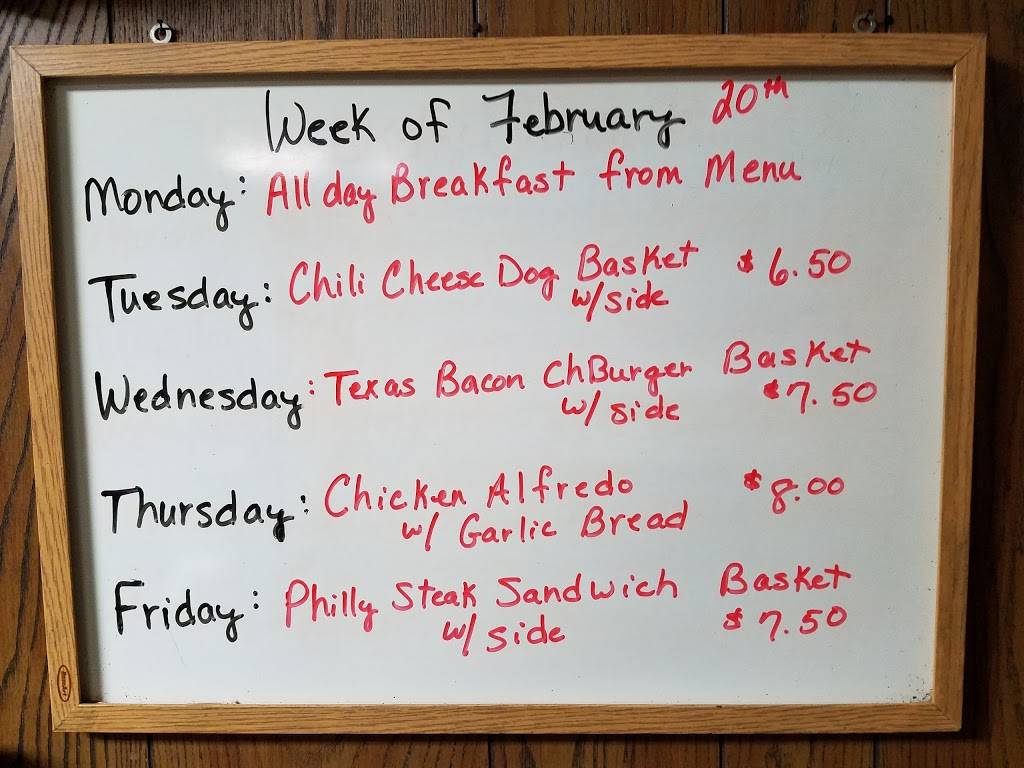 Week of February 20th
Monday: All day Breakfast from Menu
Tuesday: Chili Cheese Dog Basket $6.50
w/ side
Wednesday: Texas Bacon ChBurger Basket
w/ side $7.50
Thursday: Chicken Alfredo $8.00
w/ Garlic Bread
Friday: Philly Steak Sandwich Basket
w/ side $7.50